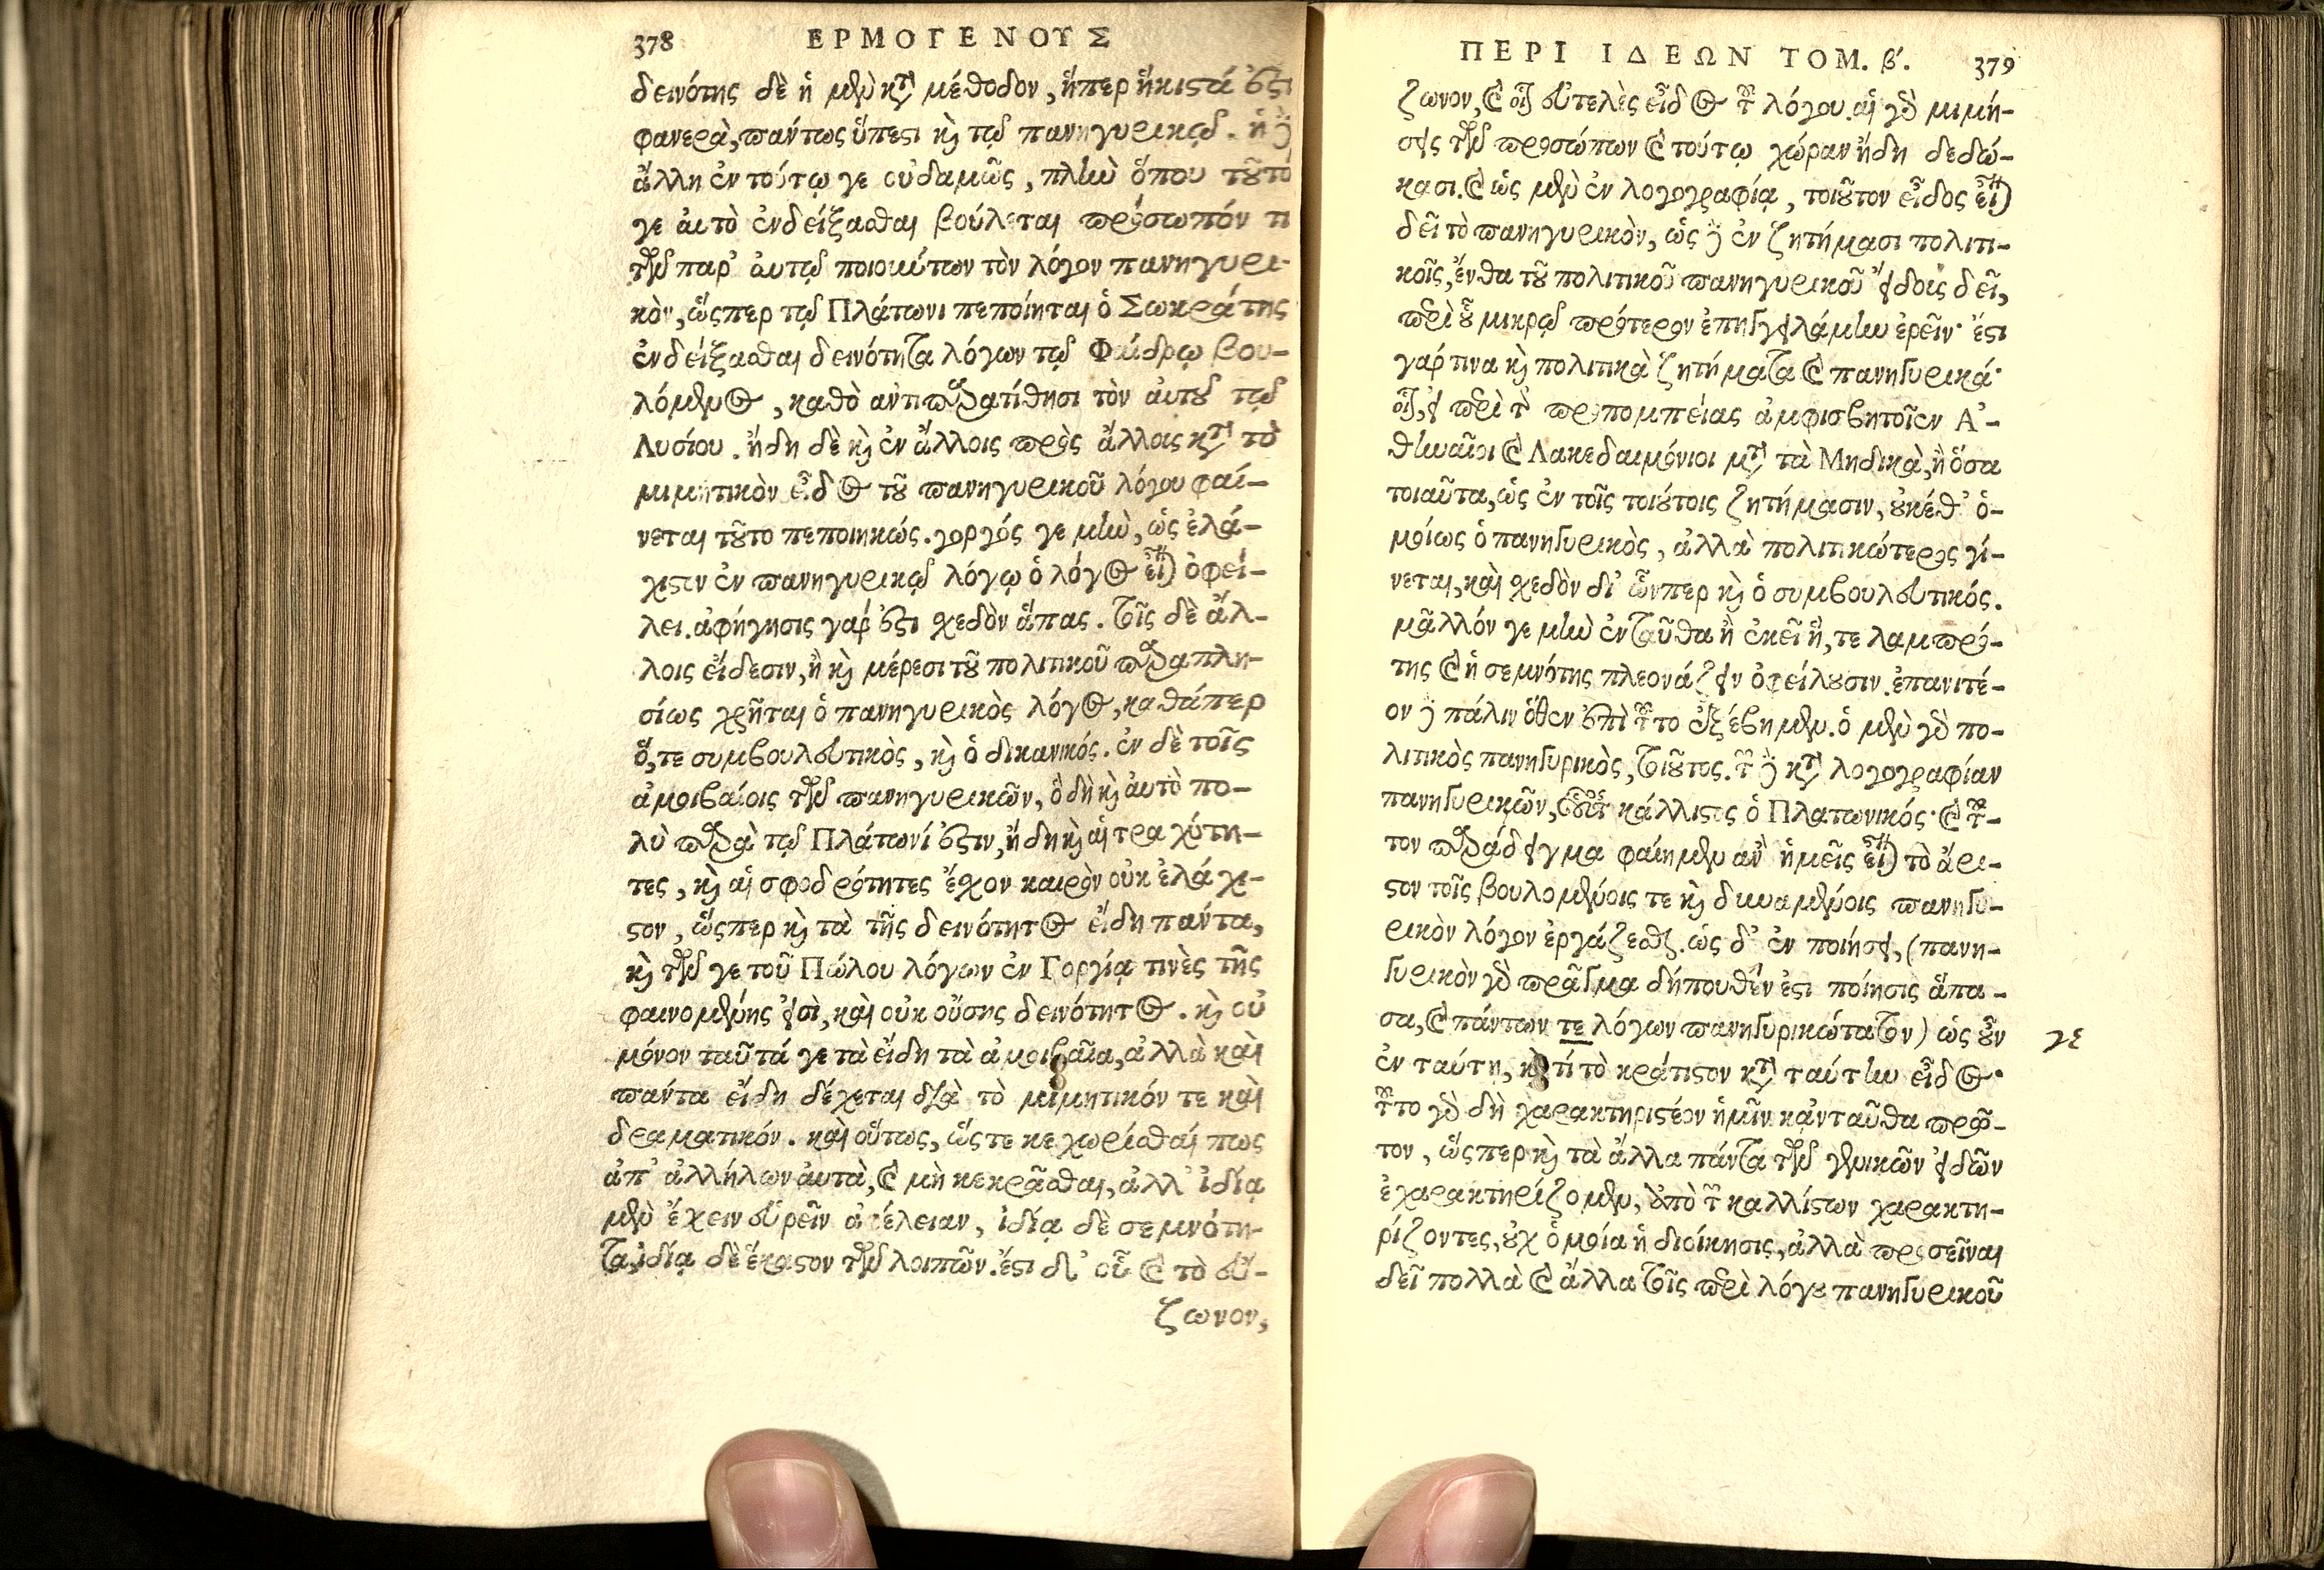 378 ΕΡΜΟΓΕΝΟΥΣ
δεινότης δὲ ἡ μὲν κατὰ μέθοδον, ἥπερ ἥκιστά ἐστι
φανερὰ, πάντως ὕπεστι καὶ τῷ πανηγυρικῷ. ἡ δὲ
ἄλλη ἐν τούτῳ γε οὐδαμῶς, πλὴν ὅπου τοῦτό
γε ἀυτὸ ἐνδείξασθαι βούλεται πρόσωπόν τι
τῶν παρ' ἀυτῷ ποιούντων τὸν λόγον πανηγυρι-
κὸν, ὥσπερ τῷ Πλάτωνι πεποίηται ὁ Σωκράτης
ἐνδείξασθαι δεινότητα λόγων τῷ Φαίδρῳ βου-
λόμενος, καθὸ αντιπαρατίθησι τὸν ἀυτοῦ τῷ
Λυσίου. ἤδη δὲ καὶ ἐν ἄλλοις πρὸς ἄλλοις κατὰ τὸ
μιμητικὸν εἶδος τοῦ πανηγυρικοῦ λόγου φαί-
νεται τοῦτο πεποιηκώς. γοργός γε μὴν, ὡς ἐλά-
χιστιν ἐν πανηγυρικῷ λόγῳ ὁ λόγος εἶναι ὀφεί-
λει. ἀφήγησις γάρ ἐστι σχεδὸν ἅπας. τοῖς δὲ ἄλ-
λοις εἴδεσιν, ἢ καὶ μέρεσι τοῦ πολιτικοῦ παραπλη-
σίως χρῆται ὁ πανηγυρικὸς λόγος, καθάπερ
ὅ, τε συμβουλευτικὸς, καὶ ὁ δικανικός. ἐν δὲ τοῖς
ἀμοιβαίοις τῶν πανηγυρικῶν, ὃ δὴ καὶ ἀυτὸ πο-
λὺ παρὰ τῷ Πλάτωνί ἐστιν, ἤδη καὶ αἱ τραχύτη-
τες, καὶ αἱ σφοδρότητες ἔχον καιρὸν οὐκ ἐλάχι-
στον, ὥσπερ καὶ τὰ τῆς δεινότητος εἴδη πάντα,
καὶ τῶν γε τοῦ Πώλου λόγων ἐν Γοργίᾳ τινὲς τῆς
φαινομένης εἰσὶ, καὶ οὐκ οὔσης δεινότητος. καὶ οὐ
μόνον ταῦτά γε τὰ εἴδη τὰ ἀμοιβαῖα, ἀλλὰ καὶ
πάντα εἴδη δέχεται διὰ τὸ μιμητικόν τε καὶ
δραματικόν. καὶ οὕτως, ὥστε κεχωρίσθαί πως
ἀπ' ἀλλήλων ἀυτὰ, καὶ μὴ κεκρᾶσθαι, ἀλλ' ἰδίᾳ
μὲν ἔχειν εὑρεῖν ἀφέλειαν, ἰδίᾳ δὲ σεμνότη-
τα, ἰδίᾳ δὲ ἕκαστον τῶν λοιπῶν. ἔστι δι' οὗ καὶ τὸ εὔ-
ζωνον,
ΠΕΡΙ ΙΔΕΩΝ ΤΟΜ. β'. 379
ζωνον, καὶ οἷον εὐτελὲς εἶδος τοῦ λόγου. αἱ γὰρ μιμή-
σεις τῶν προσώπων καὶ τούτῳ χώραν ἤδη δεδώ-
κασι. καὶ ὡς μὲν ἐν λογογραφίᾳ, τοιοῦτον εἶδος εἶναι
δεῖ τὸ πανηγυρικὸν, ὡς δὲ ἐν ζητήμασι πολιτι-
κοῖς, ἔνθα τοῦ πολιτικοῦ πανηγυρικοῦ εἴδοις δεῖ,
περὶ οὗ μικρῷ πρότερον ἐπηγγειλάμην ἐρεῖν· ἔστι
γάρ τινα καὶ πολιτικὰ ζητήματα καὶ πανηγυρικά·
οἷον, εἰ περὶ τῆς προπομπείας ἀμφισβητοῖεν Α'-
θηναῖοι καὶ Λακεδαιμόνιοι μετὰ τὰ Μηδικὰ, ἢ ὅσα
τοιαῦτα, ὡς ἐν τοῖς τοιούτοις ζητήμασιν, οὐκέθ' ὁ-
μοίως ὁ πανηγυρικὸς, ἀλλὰ πολιτικώτερος γί-
νεται, καὶ σχεδὸν δι' ὧνπερ καὶ ὁ συμβουλευτικός.
μᾶλλόν γε μὴν ἐνταῦθα ἢ ἐκεῖ ἥ, τε λαμπρό-
της καὶ ἡ σεμνότης πλεονάζειν ὀφείλουσιν. ἐπανιτέ-
ον δὲ πάλιν ὅθεν ἐπὶ τοῦτο ἐξέβημεν. ὁ μὲν γὰρ πο-
λιτικὸς πανηγυρικὸς, τοιοῦτος. τῶν δὲ κατὰ λογογραφίαν
πανηγυρικῶν, οὗτος κάλλιστος ὁ Πλατωνικός· καὶ τοῦ-
τον παράδειγμα φαίημεν αν ἡμεῖς εἶναι τὸ ἄρι-
στον τοῖς βουλομένοις τε καὶ δυναμένοις πανηγυ-
ρικὸν λόγον ἐργάζεσθαι. ὡς δ' ἐν ποιήσει, (πανη-
γυρικὸν γὰρ πρᾶγμα δήπουθέν ἐστι ποίησις ἅπα-
σα, καὶ πάντων τε λόγων πανηγυρικώτατον) ὡς οὖν γε
ἐν ταύτῃ, καὶ τί τὸ κράτιστον κατὰ ταύτην εἶδος·
τοῦτο γὰρ δὴ χαρακτηριστέον ἡμῖν κἀνταῦθα πρῶ-
τον, ὥσπερ καὶ τὰ ἄλλα πάντα τῶν γενικῶν εἰδῶν
ἐχαρακτηρίζομεν, ἀπὸ τῶν καλλίστων χαρακτη-
ρίζοντες, οὐχ ὁμοία ἡ διοίκησις, ἀλλὰ προσεῖναι
δεῖ πολλὰ καὶ ἄλλα τοῖς περὶ λόγου πανηγυρικοῦ